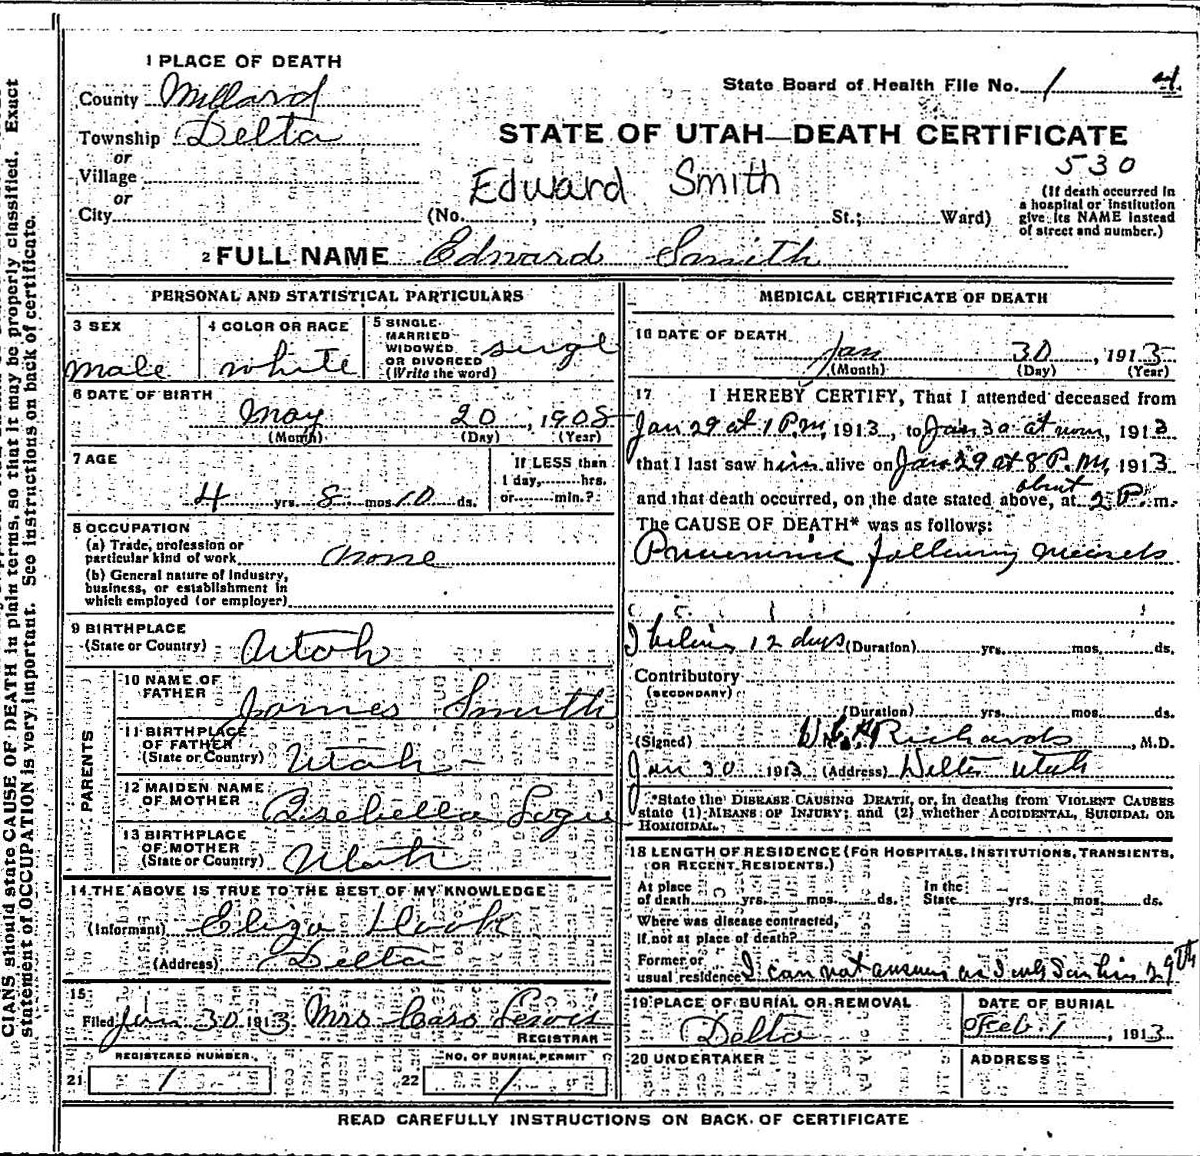 1 PLACE OF DEATH
County Millard
State Board of Health File No. 1 4
Township Delta
STATE OF UTAH—DEATH CERTIFICATE
or
530
Village
Edward Smith
(If death occurred in
a hospital or institution
give its NAME instead
of street and number.)
or
City (No. , St.; Ward)
2 FULL NAME Edward Smith
PERSONAL AND STATISTICAL PARTICULARS
3 SEX
male
4 COLOR OR RACE
white
5 SINGLE
MARRIED
WIDOWED
OR DIVORCED
(Write the word)
singl
6 DATE OF BIRTH
May 20, 1908
(Month) (Day) (Year)
7 AGE
4 yrs. 8 mos. 10 ds.
If LESS than
1 day, hrs.
or min.?
8 OCCUPATION
(a) Trade, profession or
particular kind of work none
(b) General nature of Industry,
business, or establishment in
which employed (or employer)
9 BIRTHPLACE
(State or Country) Utah
PARENTS
10 NAME OF
FATHER
James Smith
11 BIRTHPLACE
OF FATHER
(State or Country) Utah
12 MAIDEN NAME
OF MOTHER
13 BIRTHPLACE
OF MOTHER
(State or Country) Utah
14 THE ABOVE IS TRUE TO THE BEST OF MY KNOWLEDGE
(Informant) Eliza Hook
(Address) Delta
15
Filed Jan 30 1913 Mrs Lewis
REGISTRAR
REGISTERED NUMBER.
21 1
NO. OF BURIAL PERMIT
22 1
MEDICAL CERTIFICATE OF DEATH
16 DATE OF DEATH
Jan 30, 1913
(Month) (Day) (Year)
17 I HEREBY CERTIFY, That I attended deceased from
Jan 29 at 1 P.m, 1913, to Jan 30 at noon, 1913
that I last saw him alive on Jan 29 at 8 P.m, 1913
about
and that death occurred, on the date stated above, at 2 P. m.
The CAUSE OF DEATH* was as follows:
Pneumonia following measels
I believe 12 days (Duration) yrs. mos. ds.
Contributory
(SECONDARY)
(Duration) yrs. mos. ds.
(Signed) Richards, M.D.
Jan 30 1913 (Address) Delta Utah
*State the DISEASE CAUSING DEATH, or, in deaths from VIOLENT CAUSES
state (1) MEANS OF INJURY; and (2) whether ACCIDENTAL, SUICIDAL OR
HOMICIDAL.
18 LENGTH OF RESIDENCE (FOR HOSPITALS, INSTITUTIONS, TRANSIENTS,
OR RECENT RESIDENTS.)
At place
of death yrs. mos. ds.
In the
State yrs. mos. ds.
Where was disease contracted,
If not at place of death?
Former or
usual residence I can not answer as I only saw him 29th
19 PLACE OF BURIAL OR REMOVAL
Delta
DATE OF BURIAL
Feb 1, 1913
20 UNDERTAKER
ADDRESS
READ CAREFULLY INSTRUCTIONS ON BACK OF CERTIFICATE
CIANS should state CAUSE OF DEATH in plain terms, so that it may be properly classified. Exact
statement of OCCUPATION is very important. See instructions on back of certificate.